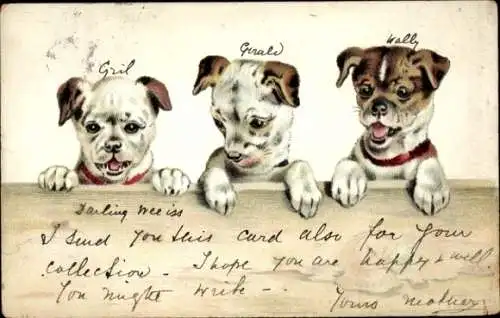 Gril
Gerald
Wally
Darling Wee iss
I send you this card also for your
collection - I hope you are happy & well
You might write - -
Yours mother